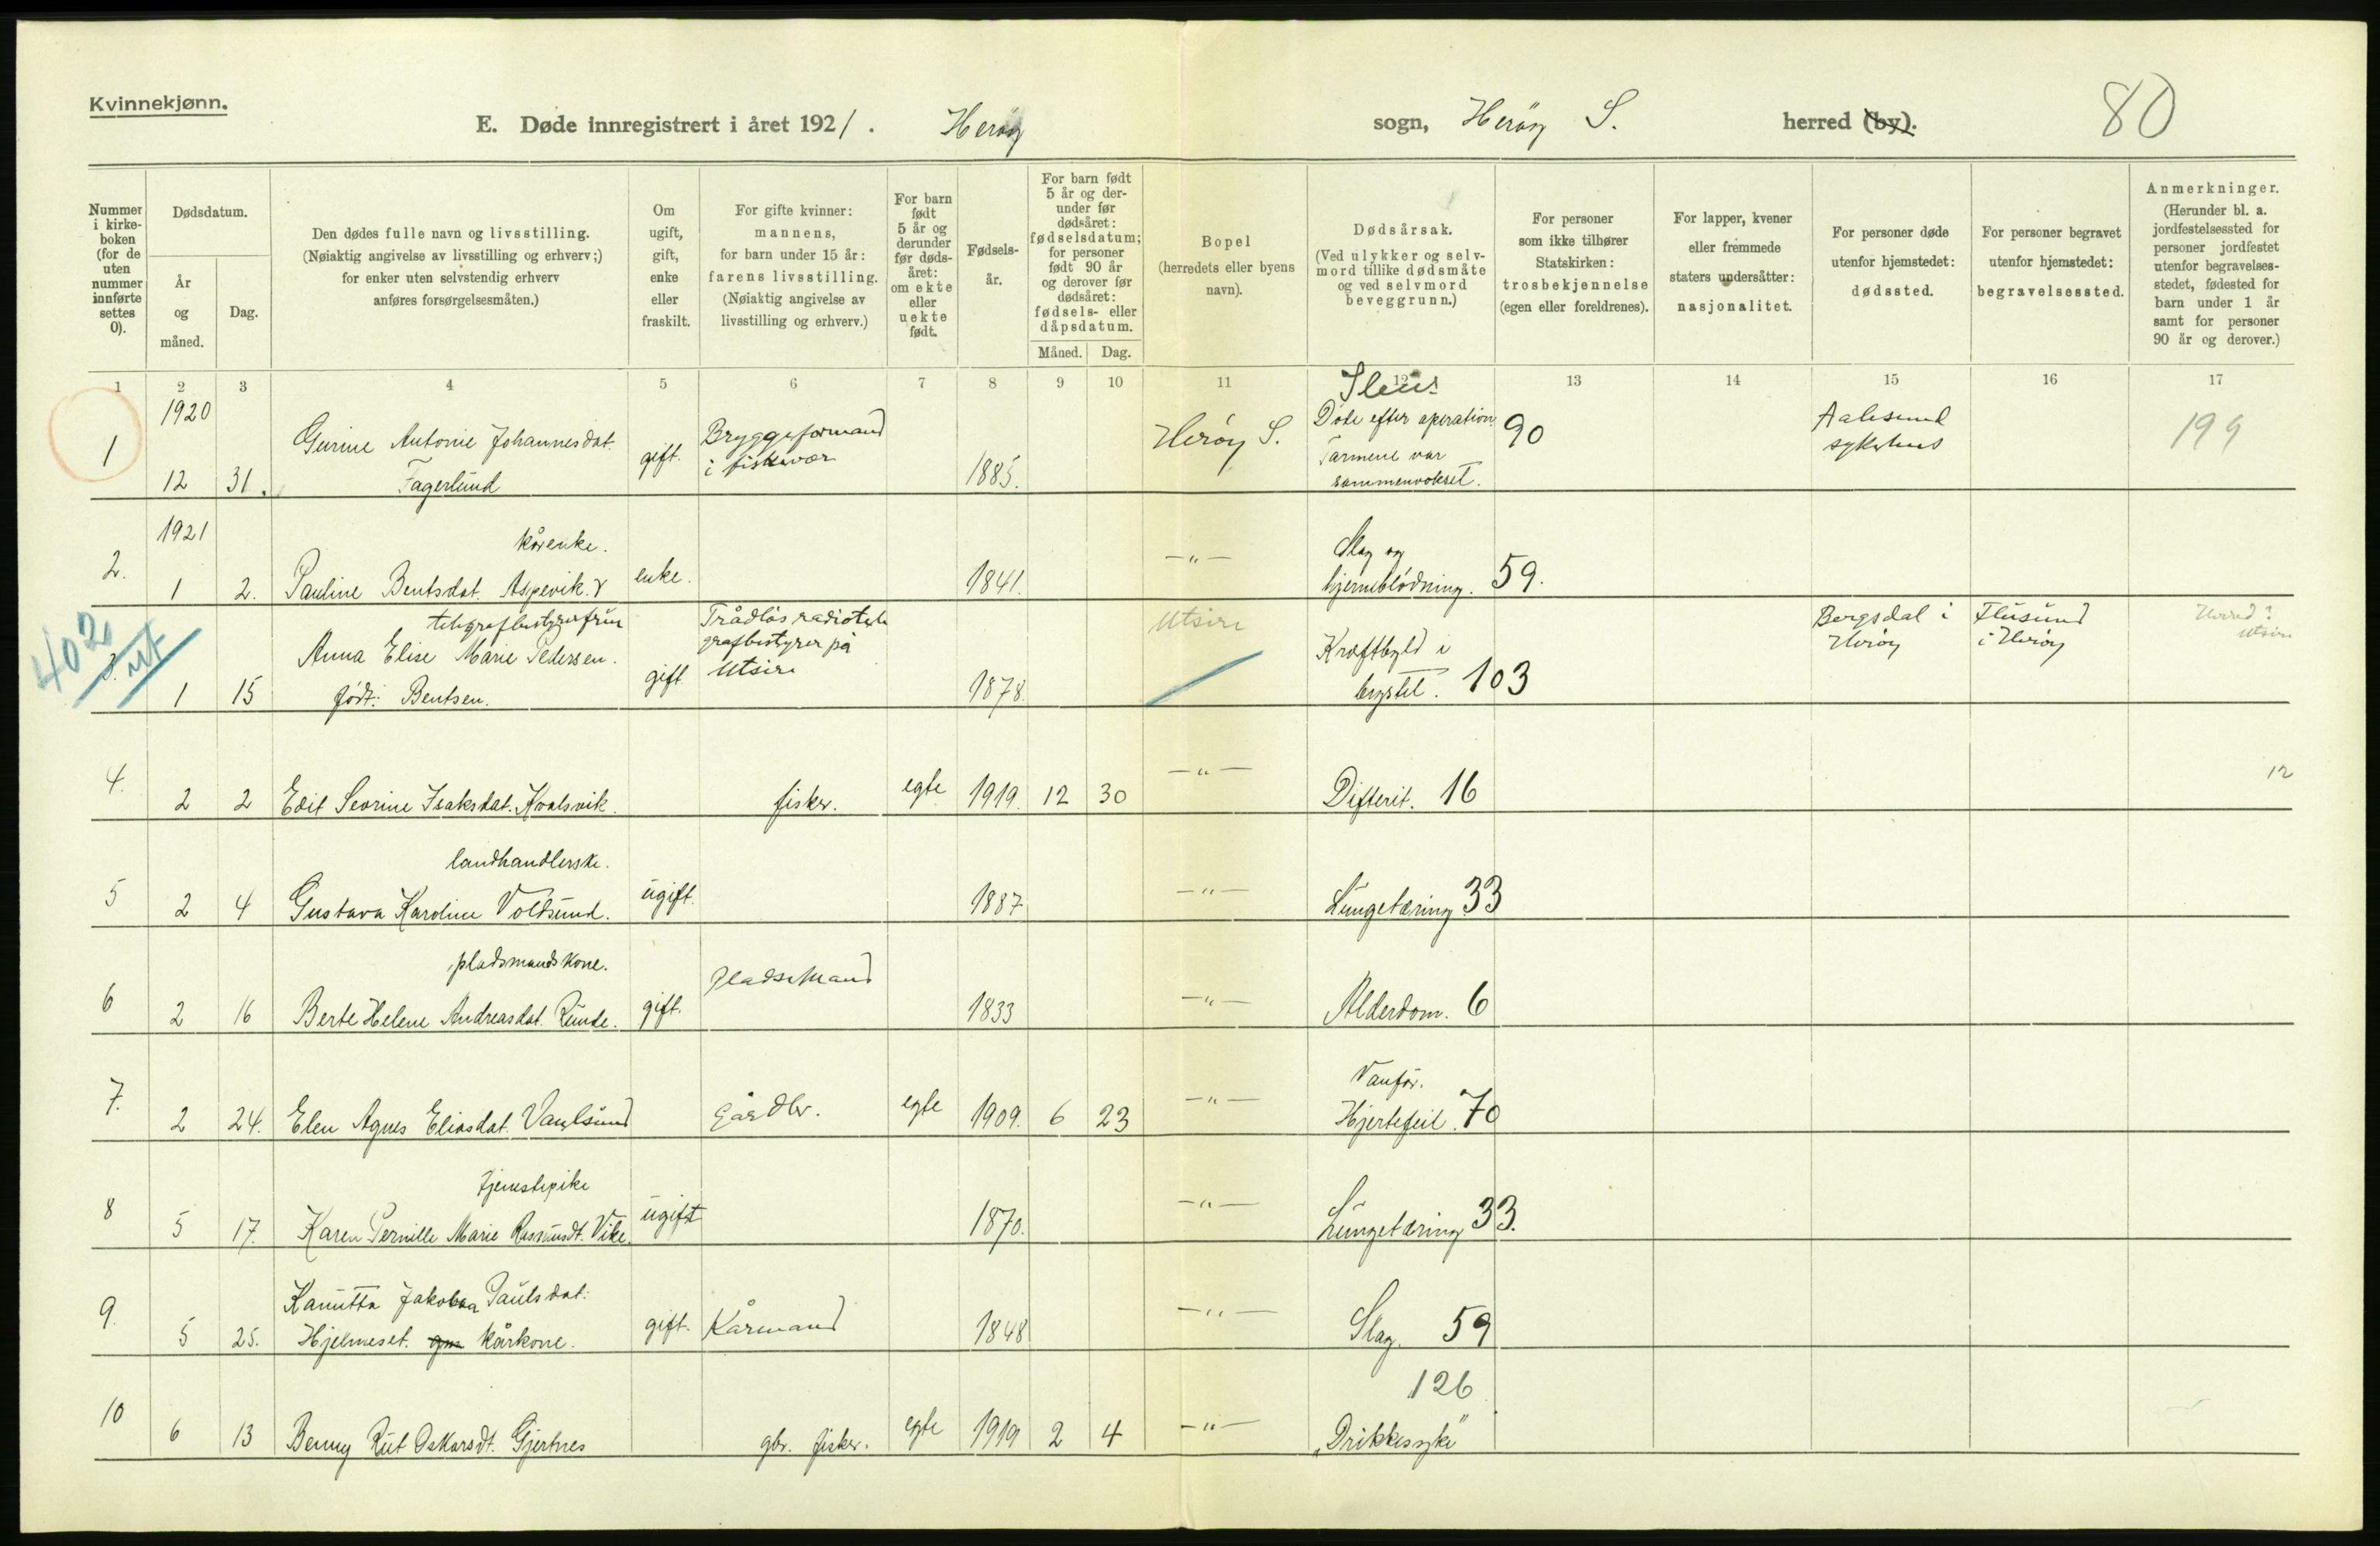 Kvinnekjønn.
E. Døde innregistrert i året 1921. Herøy sogn, Herøy S. herred (by). 80
Nummer i kirkeboken (for de uten nummer innførte settes 0).
Dødsdatum.
År og måned.
Dag.
Den dødes fulle navn og livsstilling.
(Nøiaktig angivelse av livsstilling og erhverv;)
for enker uten selvstendig erhverv
anføres forsørgelsesmåten.)
Om ugift, gift, enke eller fraskilt.
For gifte kvinner: mannens, for barn under 15 år: farens livsstilling. (Nøiaktig angivelse av livsstilling og erhverv.)
For barn født 5 år og derunder før dødsåret: om ekte eller uekte født.
Fødselsår.
For barn født 5 år og derunder før dødsåret: fødselsdatum; for personer født 90 år og derover før dødsåret: fødsels- eller dåpsdatum.
Måned.
Dag.
Bopel (herredets eller byens navn).
Dødsårsak. (Ved ulykker og selvmord tillike dødsmåte og ved selvmord beveggrunn.)
For personer som ikke tilhører Statskirken: trosbekjennelse (egen eller foreldrenes).
For lapper, kvener eller fremmede staters undersåtter: nasjonalitet.
For personer døde utenfor hjemstedet: dødssted.
For personer begravet utenfor hjemstedet: begravelsessted.
Anmerkninger. (Herunder bl. a. jordfestelsessted for personer jordfestet utenfor begravelsesstedet, fødested for barn under 1 år samt for personer 90 år og derover.)
1 2 3 4 5 6 7 8 9 10 11 12 13 14 15 16 17
1 1920 12 31. Gurine Antonie Johannesdat. Fagerlund gift. Bryggeformand i fiskevær 1885. Herøy S. Ileus Døde efter operation. Tarmene var sammenvokset. 90 Aalesund sykehus 199
2. 1921 1 2. kårenke. Pauline Bentsdat. Aspevik. enke. 1841. —„— Slag og hjerneblødning. 59.
402 ut
3. 1 15 telegrafbestyrerfrue Anna Elise Marie Pedersen. født: Bentsen. gift Trådløs radiotelegrafbestyrer på Utsire 1878. Utsire Kræftbyld i brystet. 103 Bergsdal i Herøy Flusund i Herøy Herred? Utsire
4. 2 2 Edit Sevrine Isaksdat. Kvalsvik. fisker. egte 1919. 12 30 —„— Difterit. 16 12
5 2 4 landhandlerske. Gustava Karoline Voldsund. ugift. 1887 —„— Lungetæring 33
6 2 16 pladsmandskone. Berte Helene Andreasdat. Runde. gift. pladsemand 1833 —„— Alderdom. 6
7. 2 24. Elen Agnes Eliasdat. Vaulsund Gårdbr. egte 1909. 6 23 —„— Vanfør. Hjertefeil. 70
8 5 17. tjenestepike Karen Pernille Marie Rasmusdt. Vike. ugift 1870. —„— Lungetæring 33.
9. 5 25. Kanutta Jakobaa Paulsdat: Hjelmeset. kårkone. gift. Kårmand 1848 —„— Slag. 59
10 6 13 Benny Rut Oskarsdt. Gjertnes gbr. fisker. egte 1919 2 4 —„— 126 „Drikkesyke"